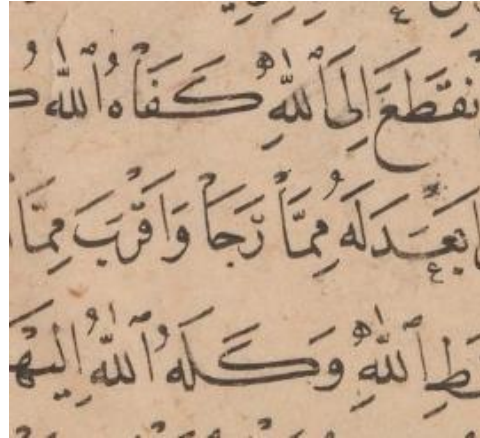 نْقَطَعَ اِلَى اللّٰهِ كَفَاهُ اللّٰهُ
بَعَدَ لَهُ مِمَّا رَجَا وَاَقْرَبَ مِمَّا
اللّٰهِ وَكَلَهُ اللّٰهُ